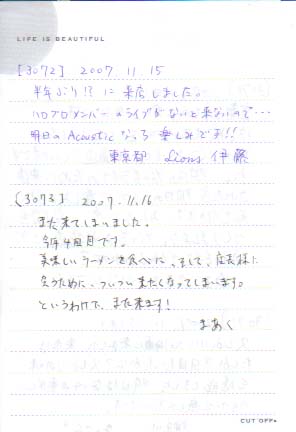 LIFE IS BEAUTIFUL
[3072] 2007.11.15
半年ぶり!?に来店しました。
ハロプロメンバーのライブがないと来ないので…
明日のAcousticなっち楽しみです!!
東京都 Lions 伊藤
[3073] 2007.11.16
また来てしまいました。
今年4回目です。
美味しいラーメンを食べに、そして、店長様に
会うために、ついつい来たくなってしまいます。
というわけで、また来ます!
まあく
CUT OFF▸